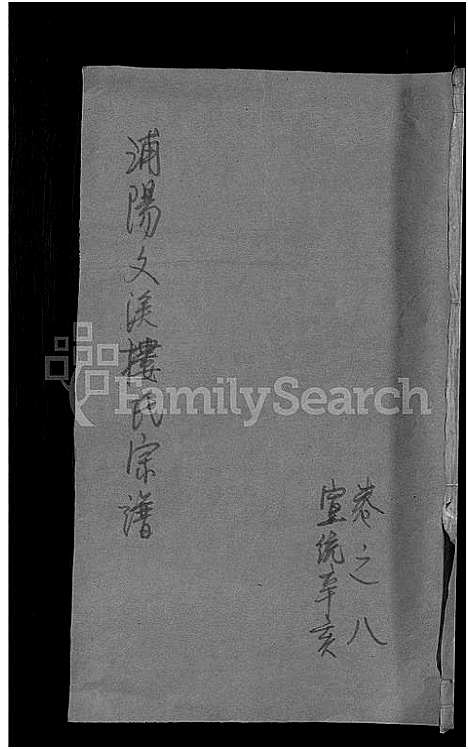 卷之八
宣統辛亥
浦陽文溪樓氏宗譜
FamilySearch